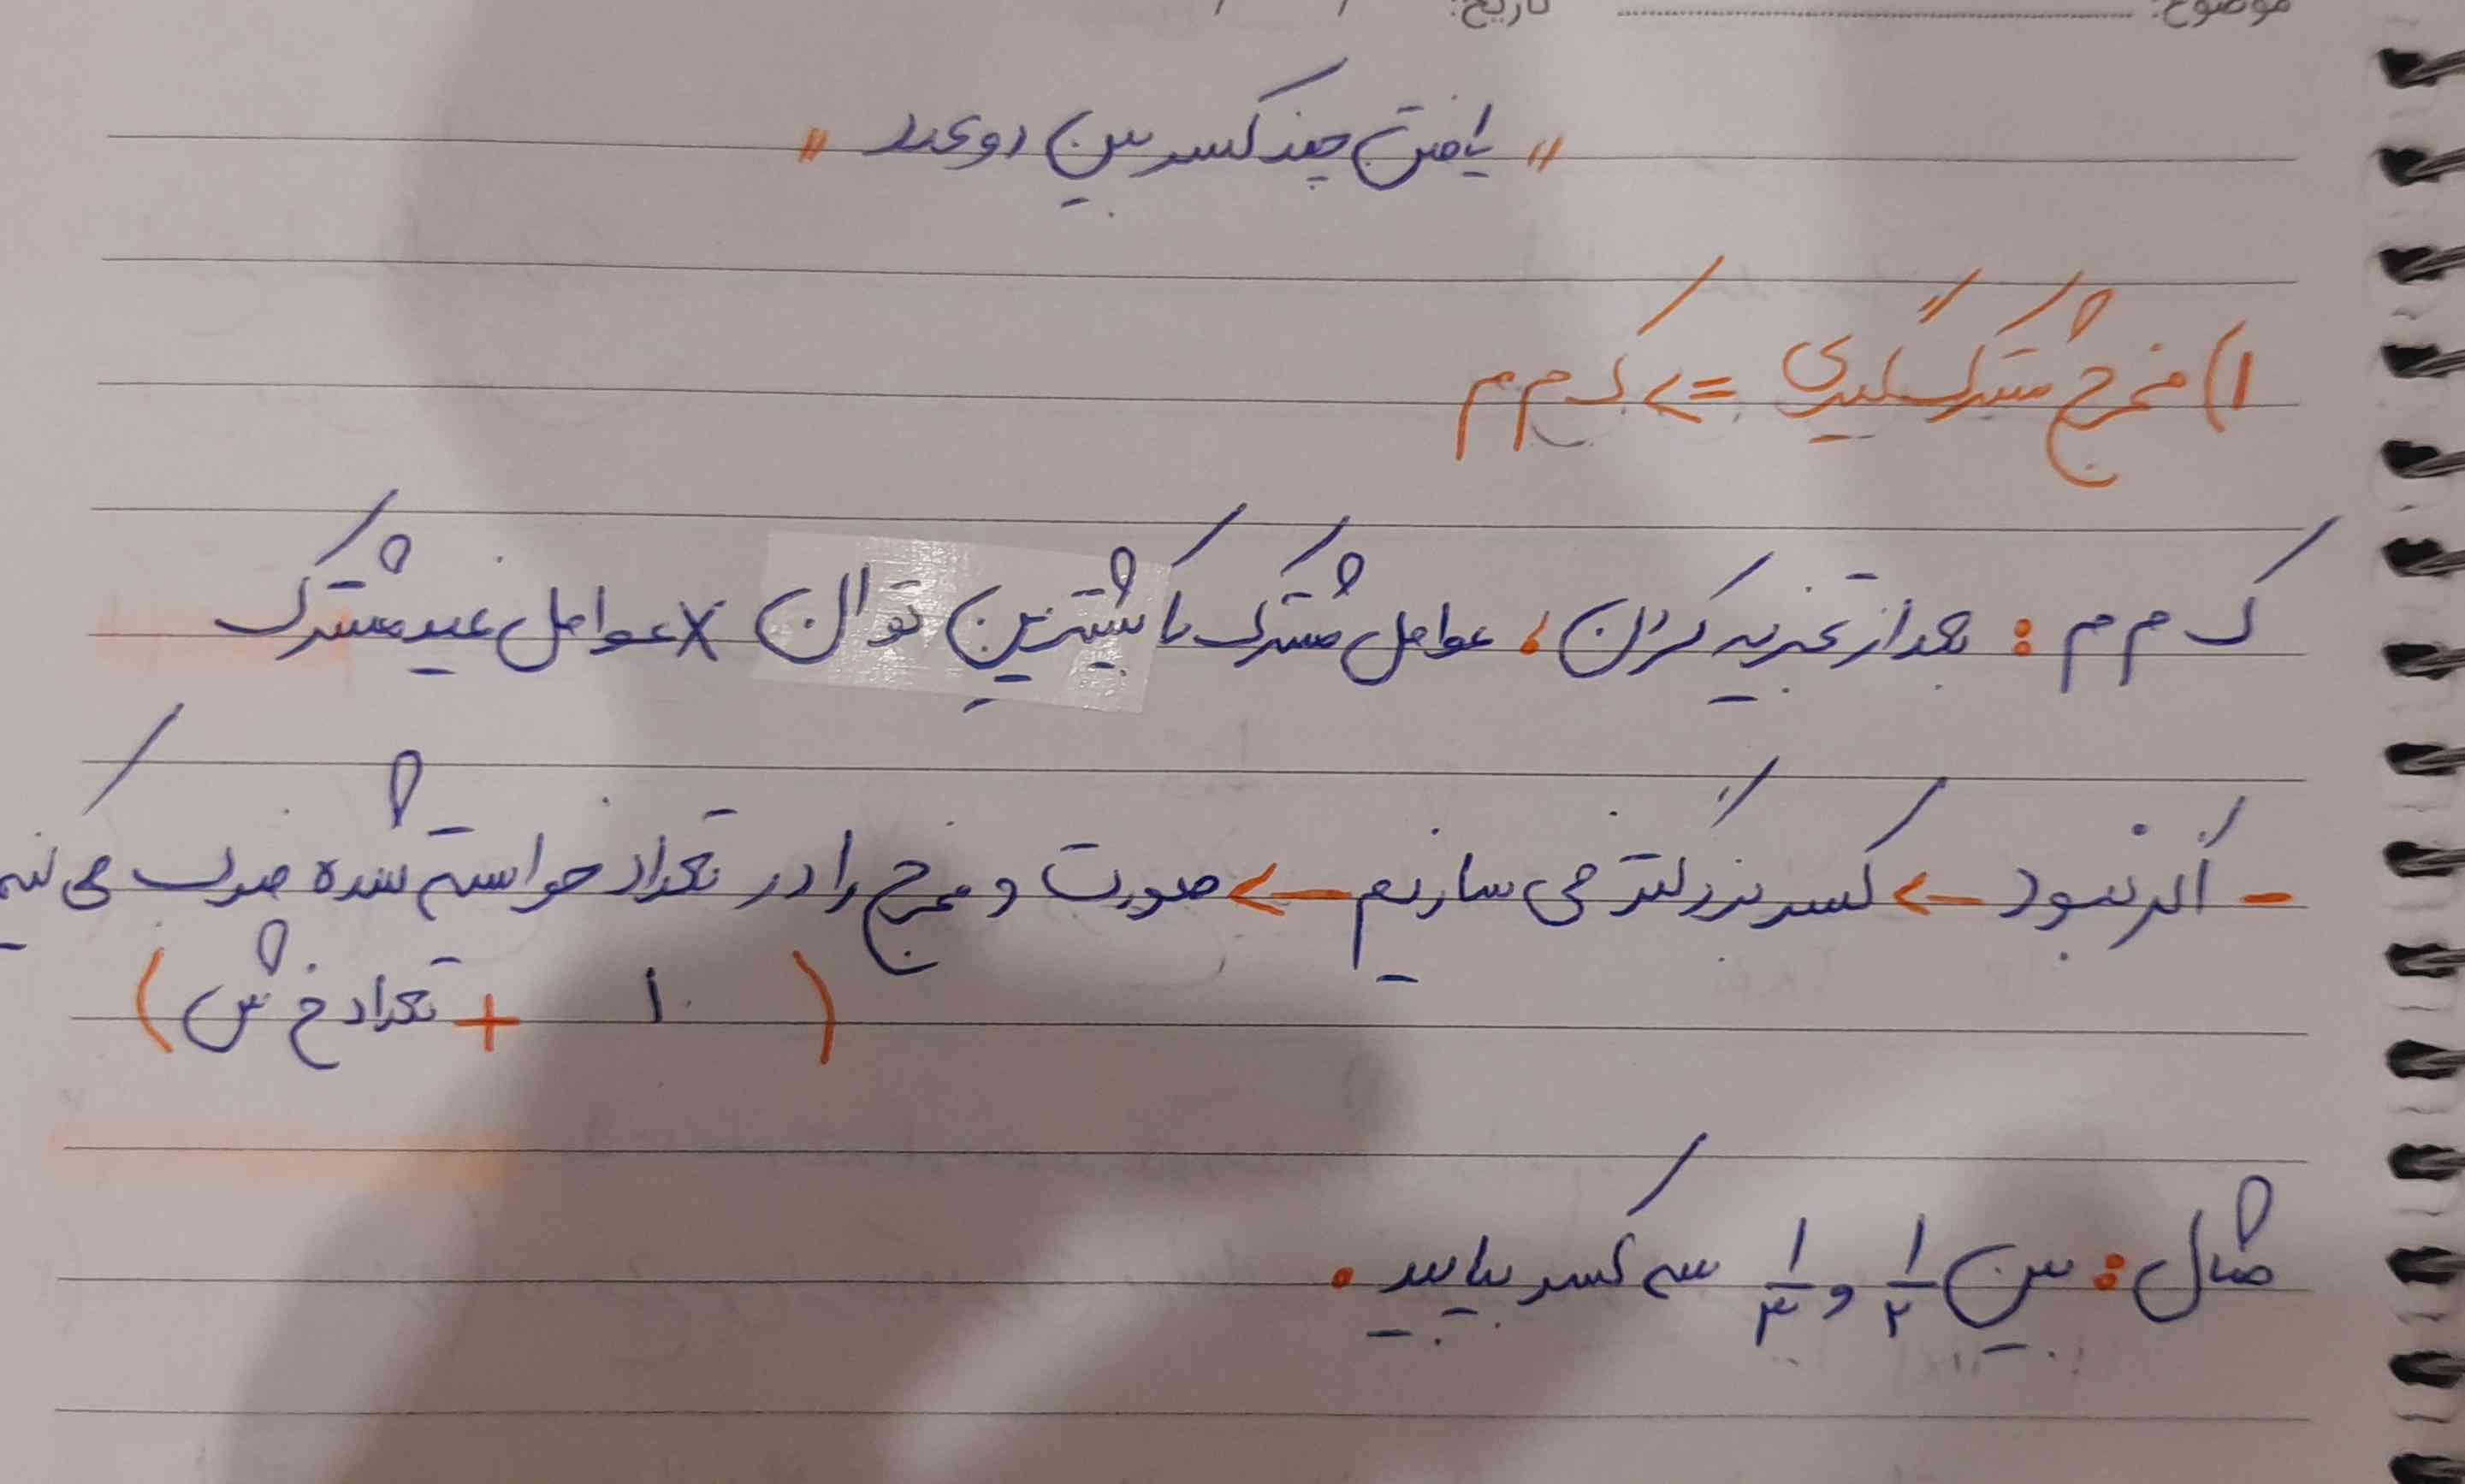 موضوع: تاریخ: / /
" یافتن چند کسر بین دو عدد "
۱) مخرج مشترک گیری => ک م م
ک م م : بعد از تجزیه کردن ، عوامل مشترک با بیشترین توان × عوامل غیر مشترک
- اگر نبود -> کسر بزرگتر می سازیم -> صورت و مخرج را در تعداد خواسته شده ضرب می کنیم
( ۱ + تعداد خ ش )
مثال : بین ۱/۲ و ۱/۳ سه کسر بیابید .